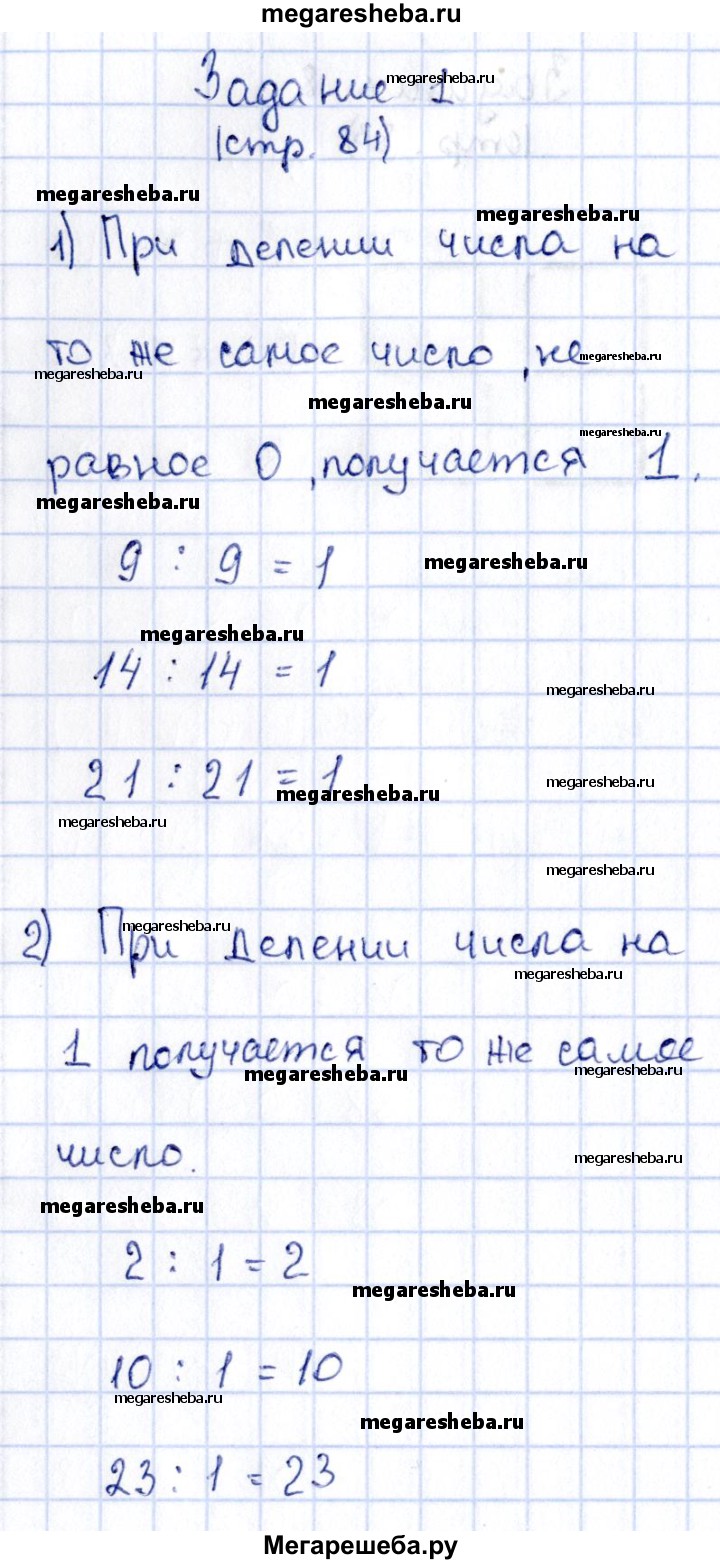 megaresheba.ru
Задание 1
megaresheba.ru
(стр. 84)
megaresheba.ru
megaresheba.ru
1) При делении числа на
то же самое число, не
megaresheba.ru
megaresheba.ru
megaresheba.ru
megaresheba.ru
равное 0, получается 1.
megaresheba.ru
9 : 9 = 1
megaresheba.ru
megaresheba.ru
14 : 14 = 1
megaresheba.ru
21 : 21 = 1
megaresheba.ru
megaresheba.ru
megaresheba.ru
megaresheba.ru
megaresheba.ru
2) При делении числа на
megaresheba.ru
1 получается то же самое
megaresheba.ru
megaresheba.ru
число.
megaresheba.ru
megaresheba.ru
2 : 1 = 2
megaresheba.ru
10 : 1 = 10
megaresheba.ru
megaresheba.ru
23 : 1 = 23
Мегарешеба.ру